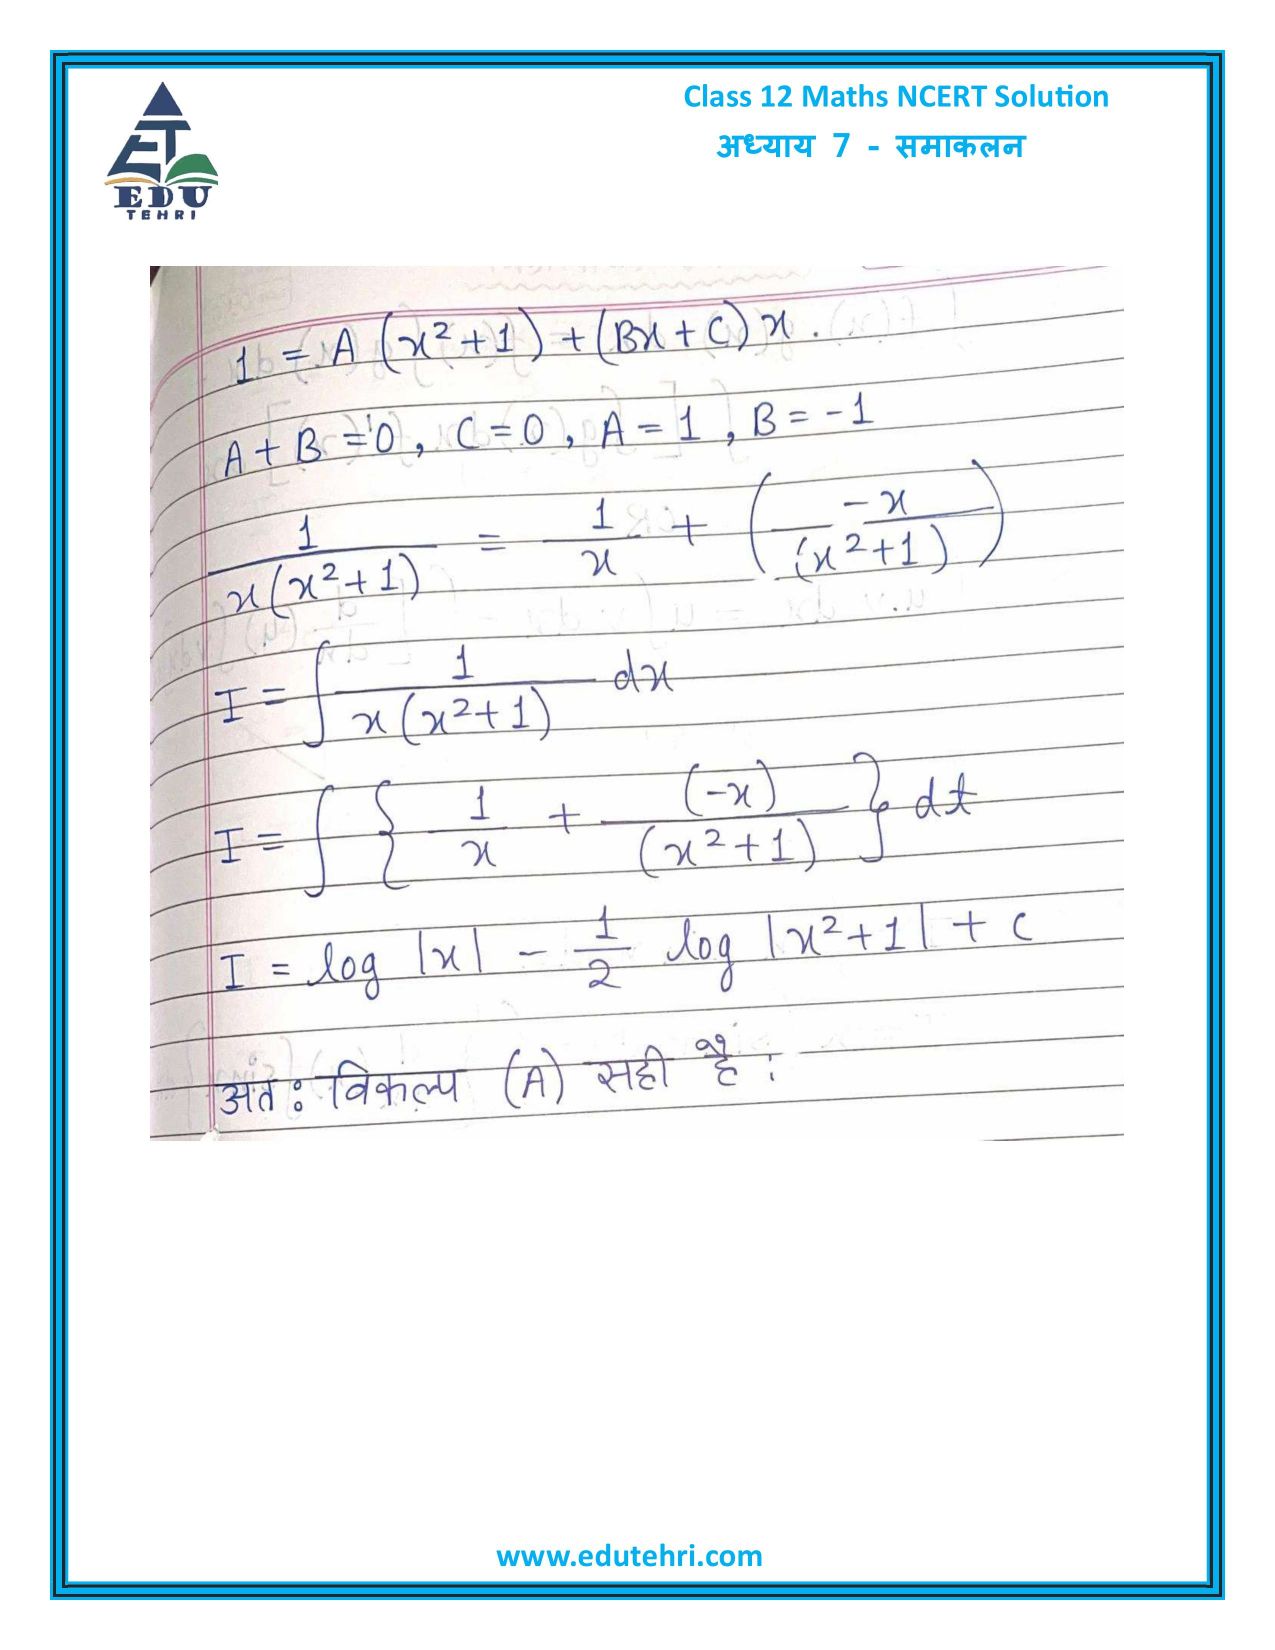 Class 12 Maths NCERT Solution
अध्याय 7 - समाकलन
ET
EDU
TEHRI
1 = A (x²+1) + (Bx + C) x .
A + B = 0 , C = 0 , A = 1 , B = -1
1/(x(x²+1)) = 1/x + (-x/(x²+1))
I = ∫ 1/(x(x²+1)) dx
I = ∫ { 1/x + (-x)/(x²+1) } dt
I = log |x| - 1/2 log |x²+1| + c
अतः विकल्प (A) सही है :
www.edutehri.com